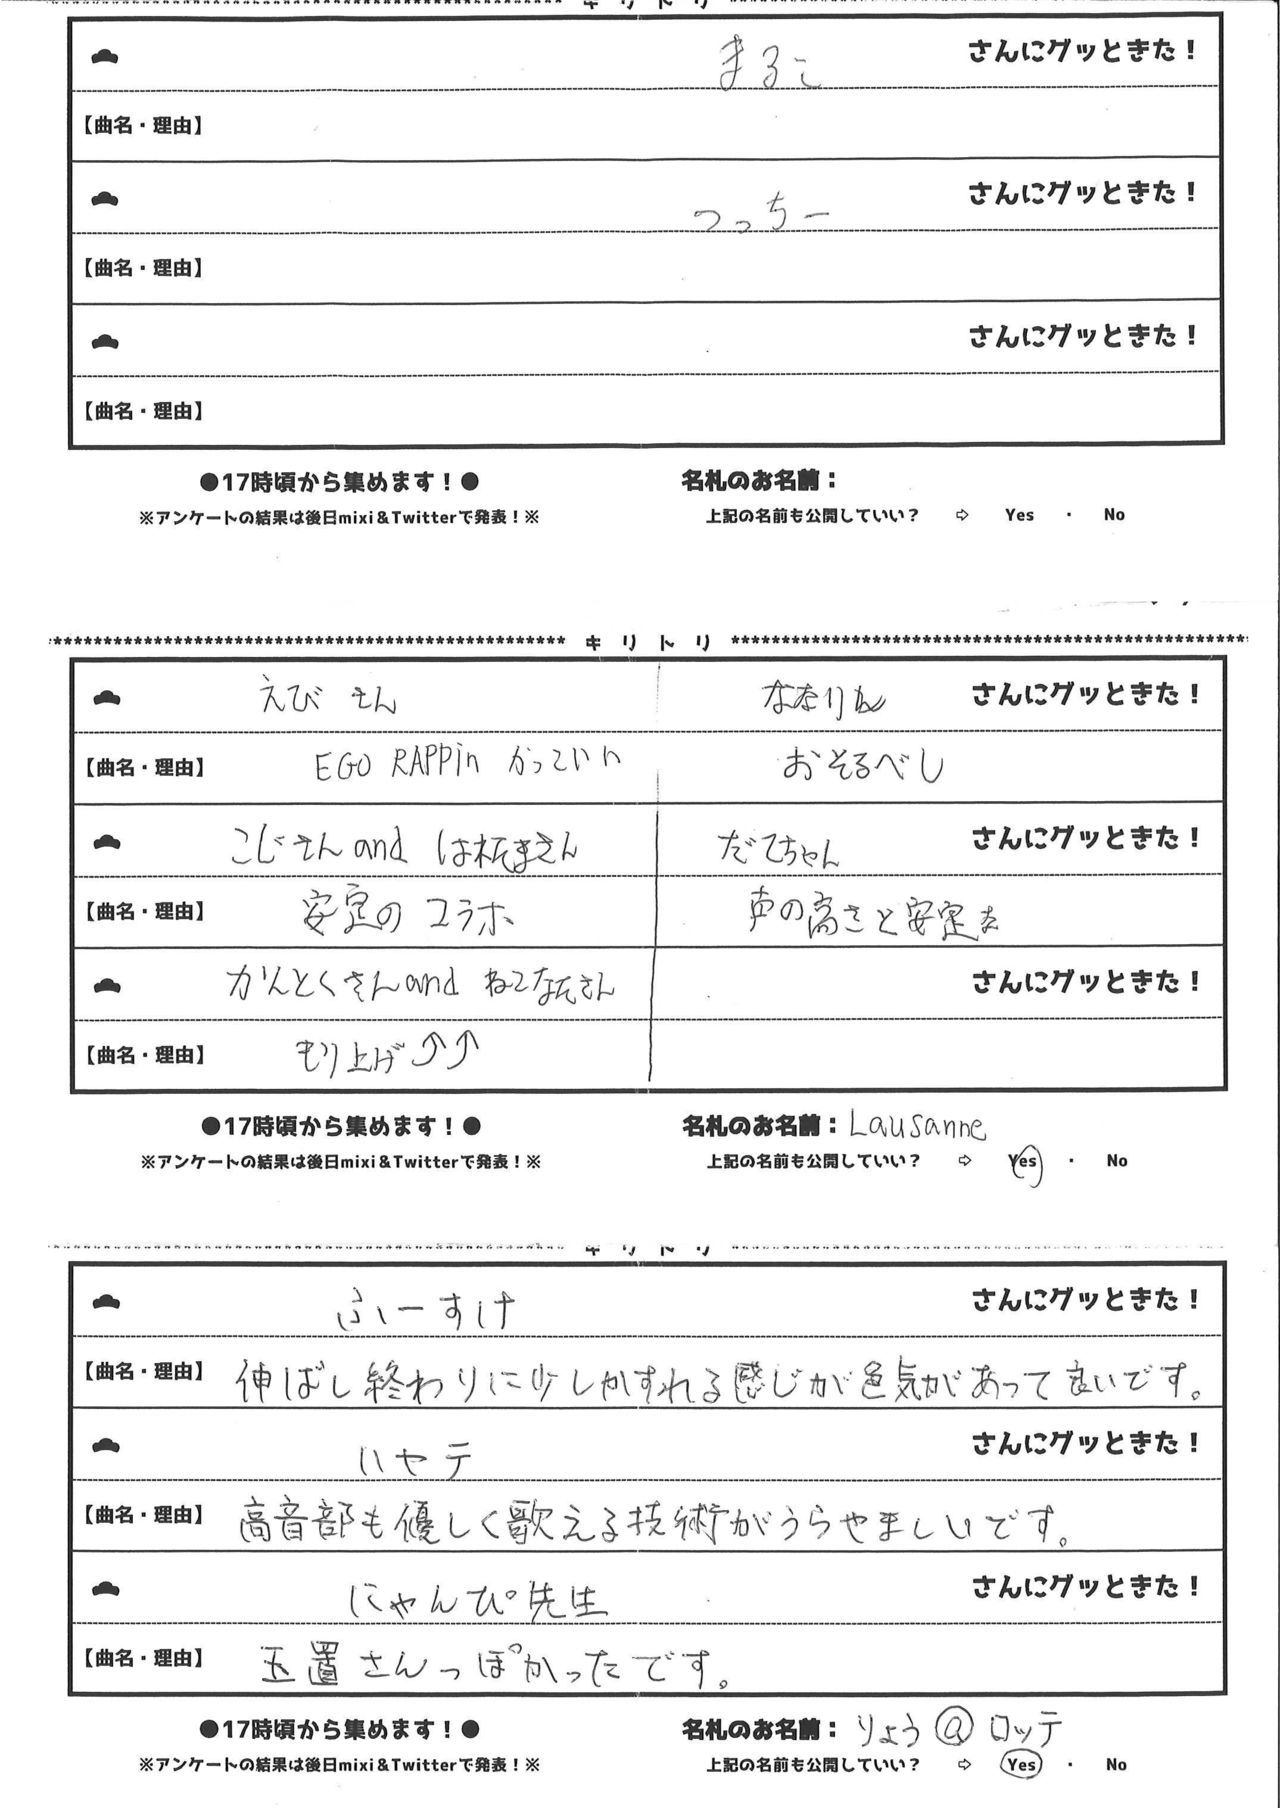 キリトリ
まるこ さんにグッときた！
【曲名・理由】
つっちー さんにグッときた！
【曲名・理由】
さんにグッときた！
【曲名・理由】
●17時頃から集めます！● 名札のお名前：
※アンケートの結果は後日mixi＆Twitterで発表！※ 上記の名前も公開していい？ ⇨ Yes ・ No
************************************************** キリトリ **************************************************
えびさん ななりん さんにグッときた！
【曲名・理由】 EGO RAPPin かっこいい おそるべし
こじさん and は さん だてちゃん さんにグッときた！
【曲名・理由】 安定の コラボ 声の高さと安定さ
かんとくさん and ねこなべさん さんにグッときた！
【曲名・理由】 もり上げ↑↑
●17時頃から集めます！● 名札のお名前：Lausanne
※アンケートの結果は後日mixi＆Twitterで発表！※ 上記の名前も公開していい？ ⇨ Yes ・ No
キリトリ
ふーすけ さんにグッときた！
【曲名・理由】 伸ばし終わりに少しかすれる感じが色気があって良いです。
ハヤテ さんにグッときた！
【曲名・理由】 高音部も優しく歌える技術がうらやましいです。
にゃんぴ先生 さんにグッときた！
【曲名・理由】 玉置さんっぽかったです。
●17時頃から集めます！● 名札のお名前：りょう@ロッテ
※アンケートの結果は後日mixi＆Twitterで発表！※ 上記の名前も公開していい？ ⇨ Yes ・ No